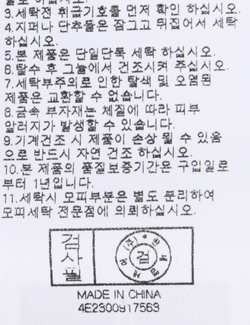 3.세탁전 취급기호를 먼저 확인 하십시오.
4.지퍼나 단추들은 잠그고 뒤집어서 세탁
하십시오.
5.본 제품은 단일단독 세탁 하십시오.
6.탈수 후 그늘에서 건조시켜 주십시오.
7.세탁부주의로 인한 탈색 및 오염된
제품은 교환할 수 없습니다.
8.금속 부자재는 체질에 따라 피부
알러지가 발생할 수 있습니다.
9.기계건조 시 제품이 손상 될 수 있음
으로 반드시 자연 건조 하십시오.
10.본 제품의 품질보증기간은 구입일로
부터 1년입니다.
11.세탁시 모피부분은 별도 분리하여
모피세탁 전문점에 의뢰하십시오.
검
사
필
검
MADE IN CHINA
4E2300917563